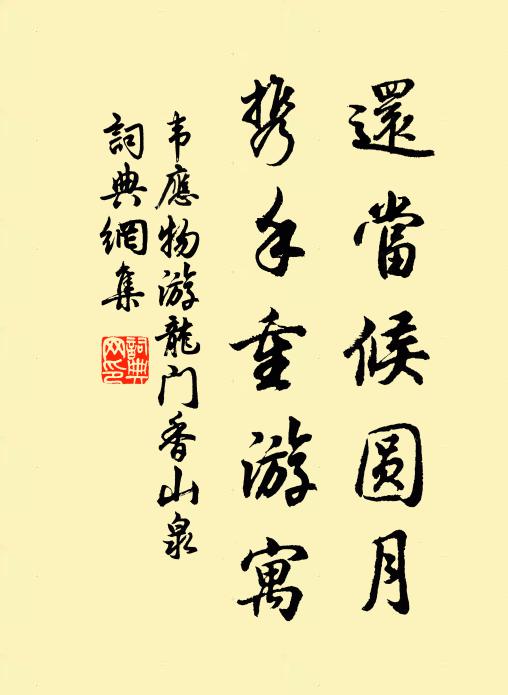 還當候圆月
携手重游寓
韦應物游龍门香山泉
詞典網集
詞典网印